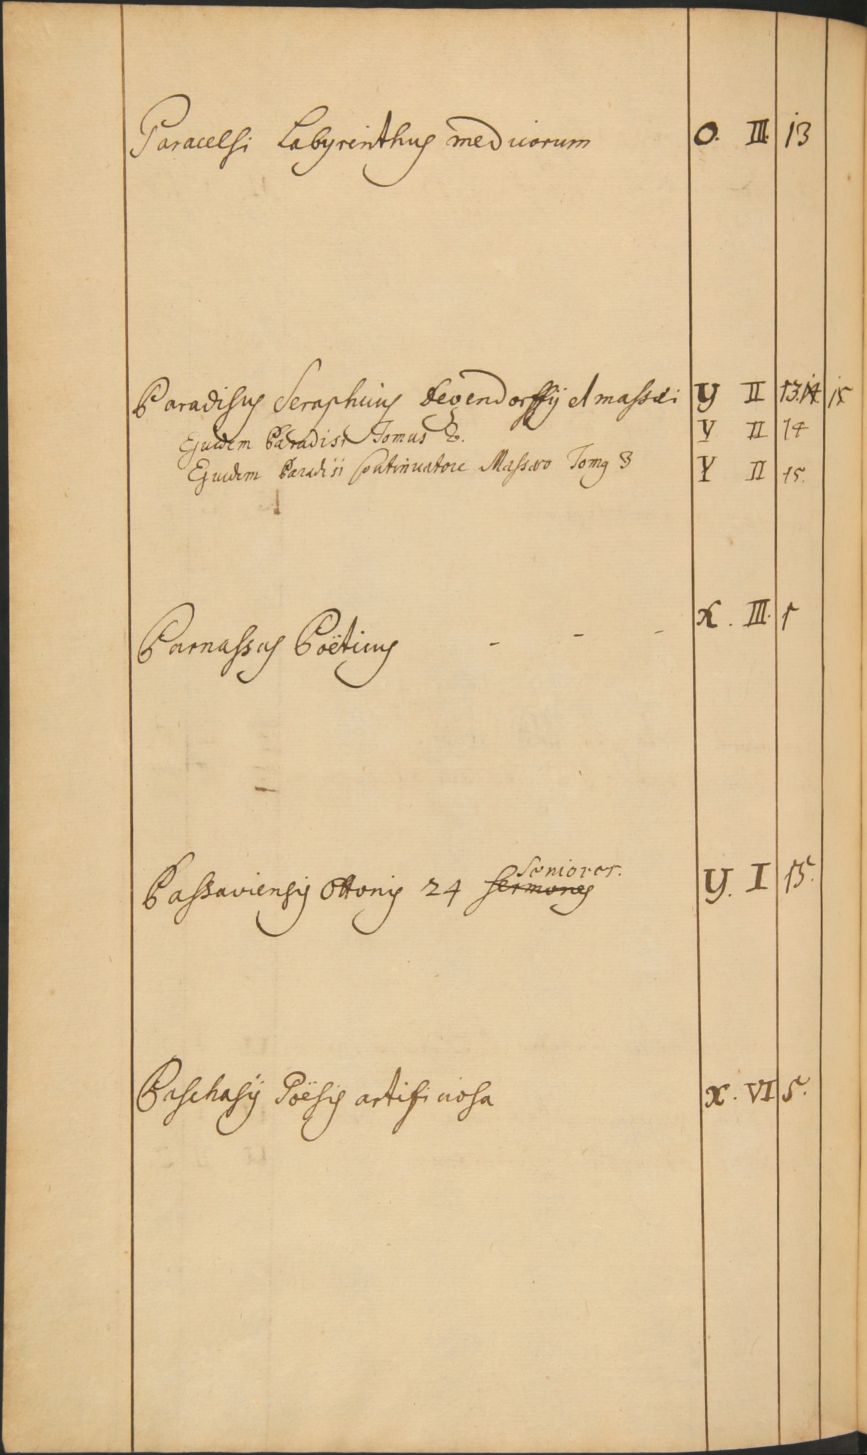 Paracelsi Labyrinthus medicorum O. III 13
Paradisus Seraphicus Degendorffij et massæi Y II 13.14 15
Ejusdem Paradisi Tomus 2. Y II 14
Ejusdem Paradisi Continuatore Massæo Tomus 3 Y II 15.
Parnassus Poëticus - - - X. III. 1
Seniores.
Passaviensis Ottonis 24 sermones Y. I 15.
Paschasij Poësis artificiosa X. VI 5.